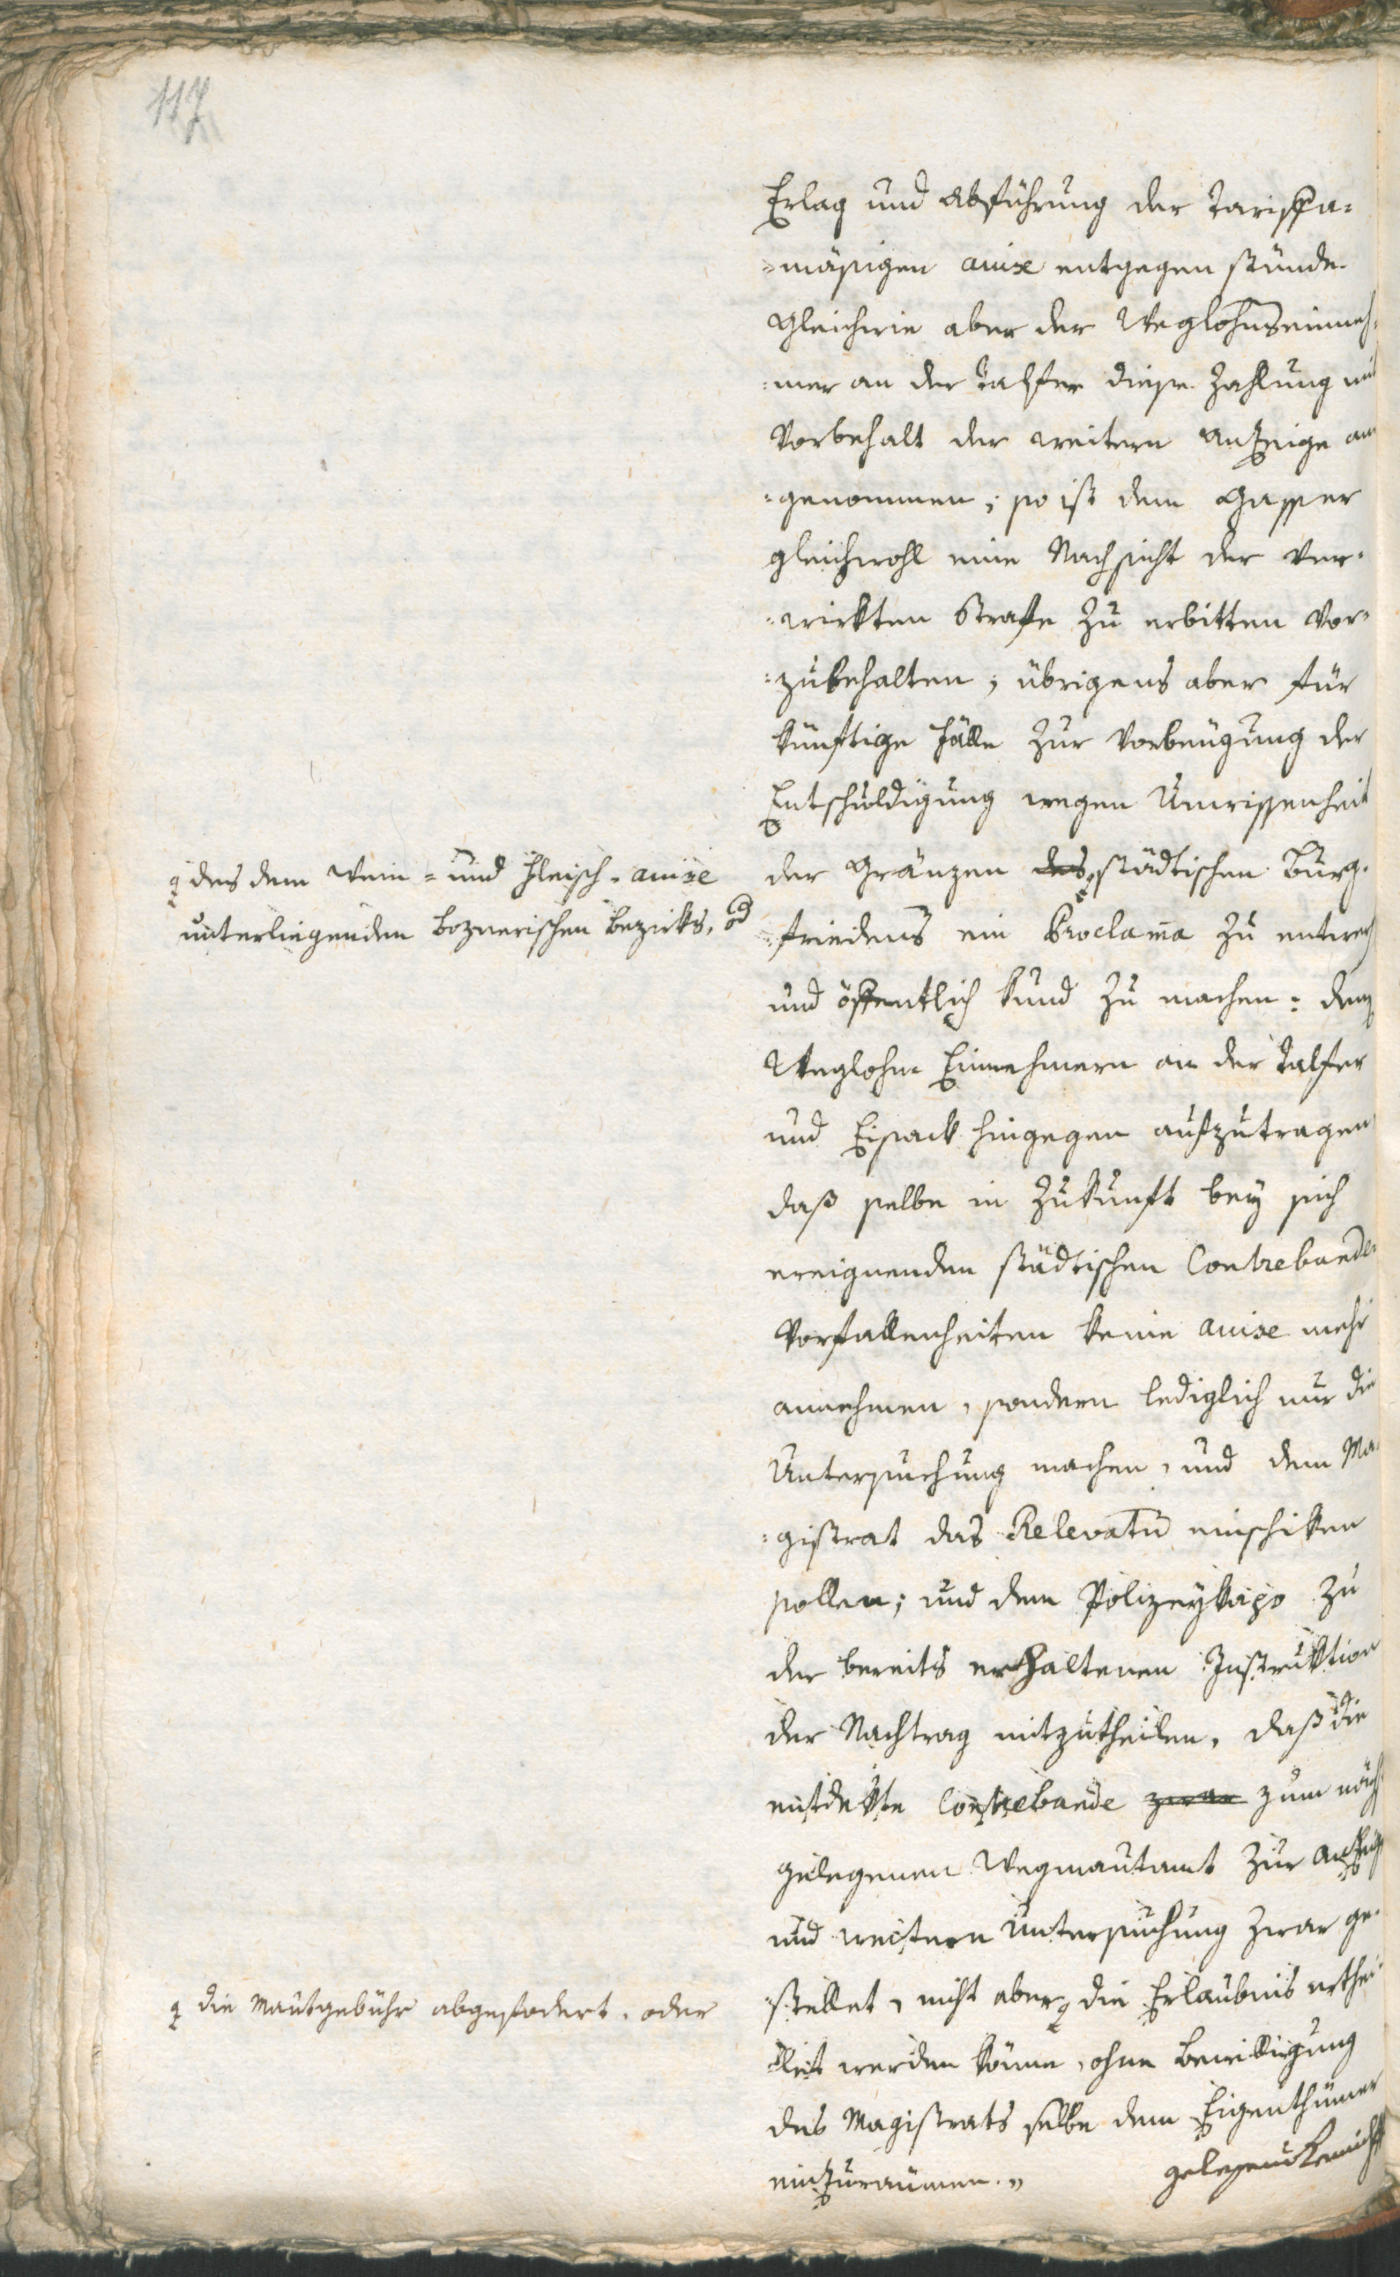 117
Erlag und Abführung der Tariffa¬
=mäsigen auise entgegen stünde.
Gleichwie aber der Weglohnseinneh¬
=mer an der Talfer diese Zahlung mit
Vorbehalt der weitern Anzeige an
=genommen; so ist dem Gasser
gleichwohl eine Nachsicht der ver=
=wirkten Strafe zu erbitten vor=
=zubehalten; übrigens aber für
künftige Fälle zur Vorbeugung der
Entschuldigung wegen Unwissenheit
der Gränzen des städtischen Burg=
=friedens ein Proclama zu entwer
und öffentlich kund zu machen: den
Weglohn Einnehmern an der Talfer
und Eisack hingegen aufzutragen
daß selbe in Zukunft bey sich
ereignenden städtischen Contrebande
Vorfallenheiten keine auise mehr
annehmen, sondern lediglich nur die
Untersuchung machen, und dem Ma=
=gistrat das Relevatū einschiken
sollen; und dem Polizeykapo zu
der bereits erhaltenen Instruktion
der Nachtrag mitzutheilen, daß die
entdekte Contrebande zwar zum näch
gelegenen Wegmautamt zur Anzeig
und weitern Untersuchung zwar ge=
stellet, nicht aber die Erlaubnis erthei
let werden könne, ohne Bewilligung
des Magistrats selbe dem Eigenthümer
einzuraumen.
des dem Wein= und Fleisch-auise
unterliegenden boznerischen Bezirks, od
die Mautgebühr abgefodert, oder